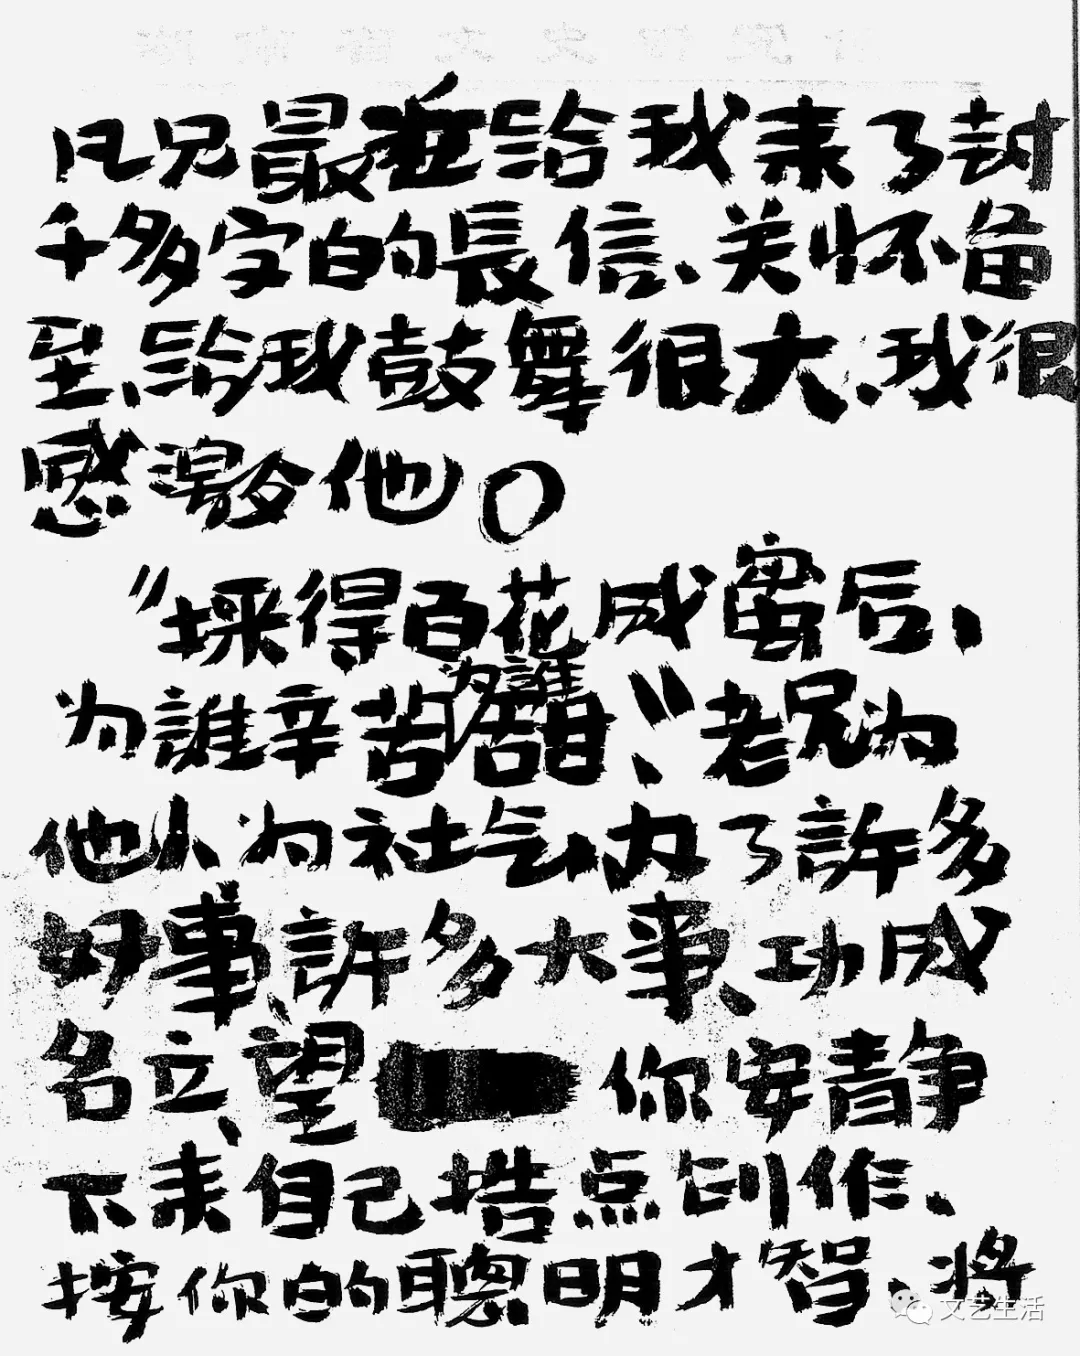 凡兄最近給我来了封
千多字的長信、关怀备
至、給我鼓舞很大、我很
感激他。
"採得百花成蜜后、
为誰辛苦为誰甜、"老兄为
他人为社会、办了許多
好事、許多大事、功成
名立、望你安静
下来自己搞点创作、
按你的聰明才智、将
文艺生活